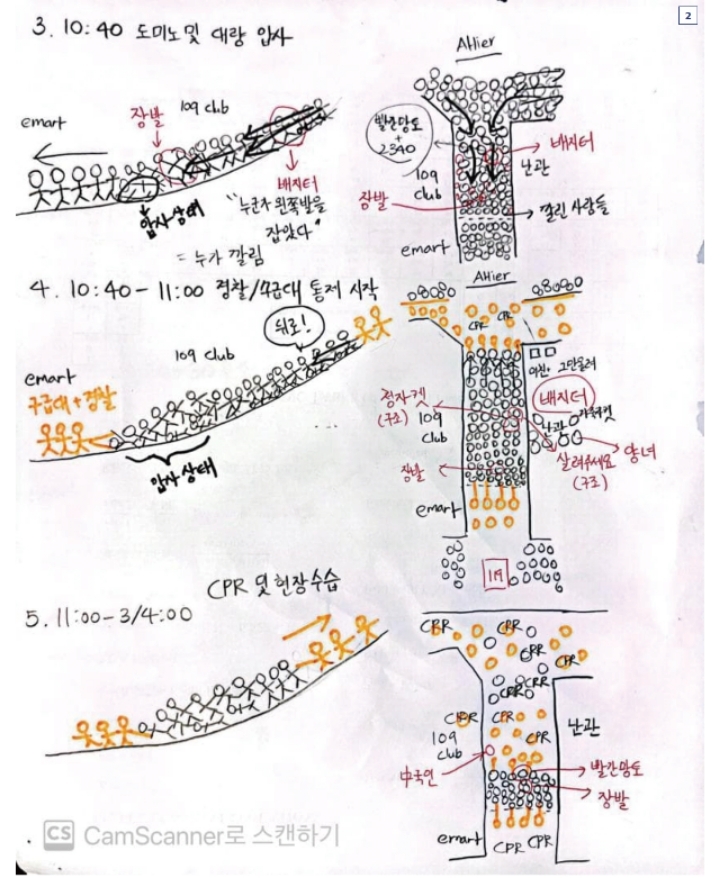 2
3. 10:40 도미노 및 대량 압사
Atlier
emart
장발
109 club
압사 상태
배지터
"누군가 왼쪽발을
잡았다"
= 누가 깔림
빨간망토
+
2340
배지터
109
club
난관
장발
깔린 사람들
emart
4. 10:40 - 11:00 경찰/구급대 통제 시작
Atlier
뒤로!
109 club
emart
구급대 + 경찰
압사 상태
CPR
CPR
청자켓
(구조)
109
club
배지터
난관
살려주세요
(구조)
양녀
장발
emart
119
CPR 및 현장수습
5. 11:00 - 3/4:00
CPR
CPR
CPR
CPR
CPR
CPR
CPR
CPR
CPR
109
club
난관
中국인
빨간망토
장발
emart
CPR CPR
CS CamScanner로 스캔하기